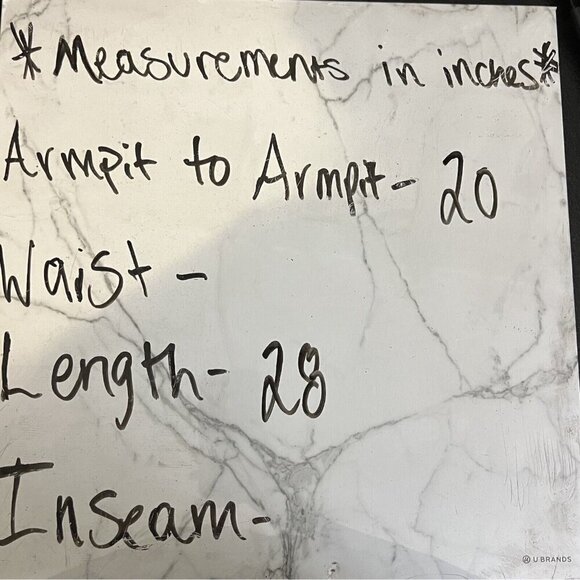 *Measurements in inches*
Armpit to Armpit- 20
Waist -
Length- 28
Inseam-
U BRANDS